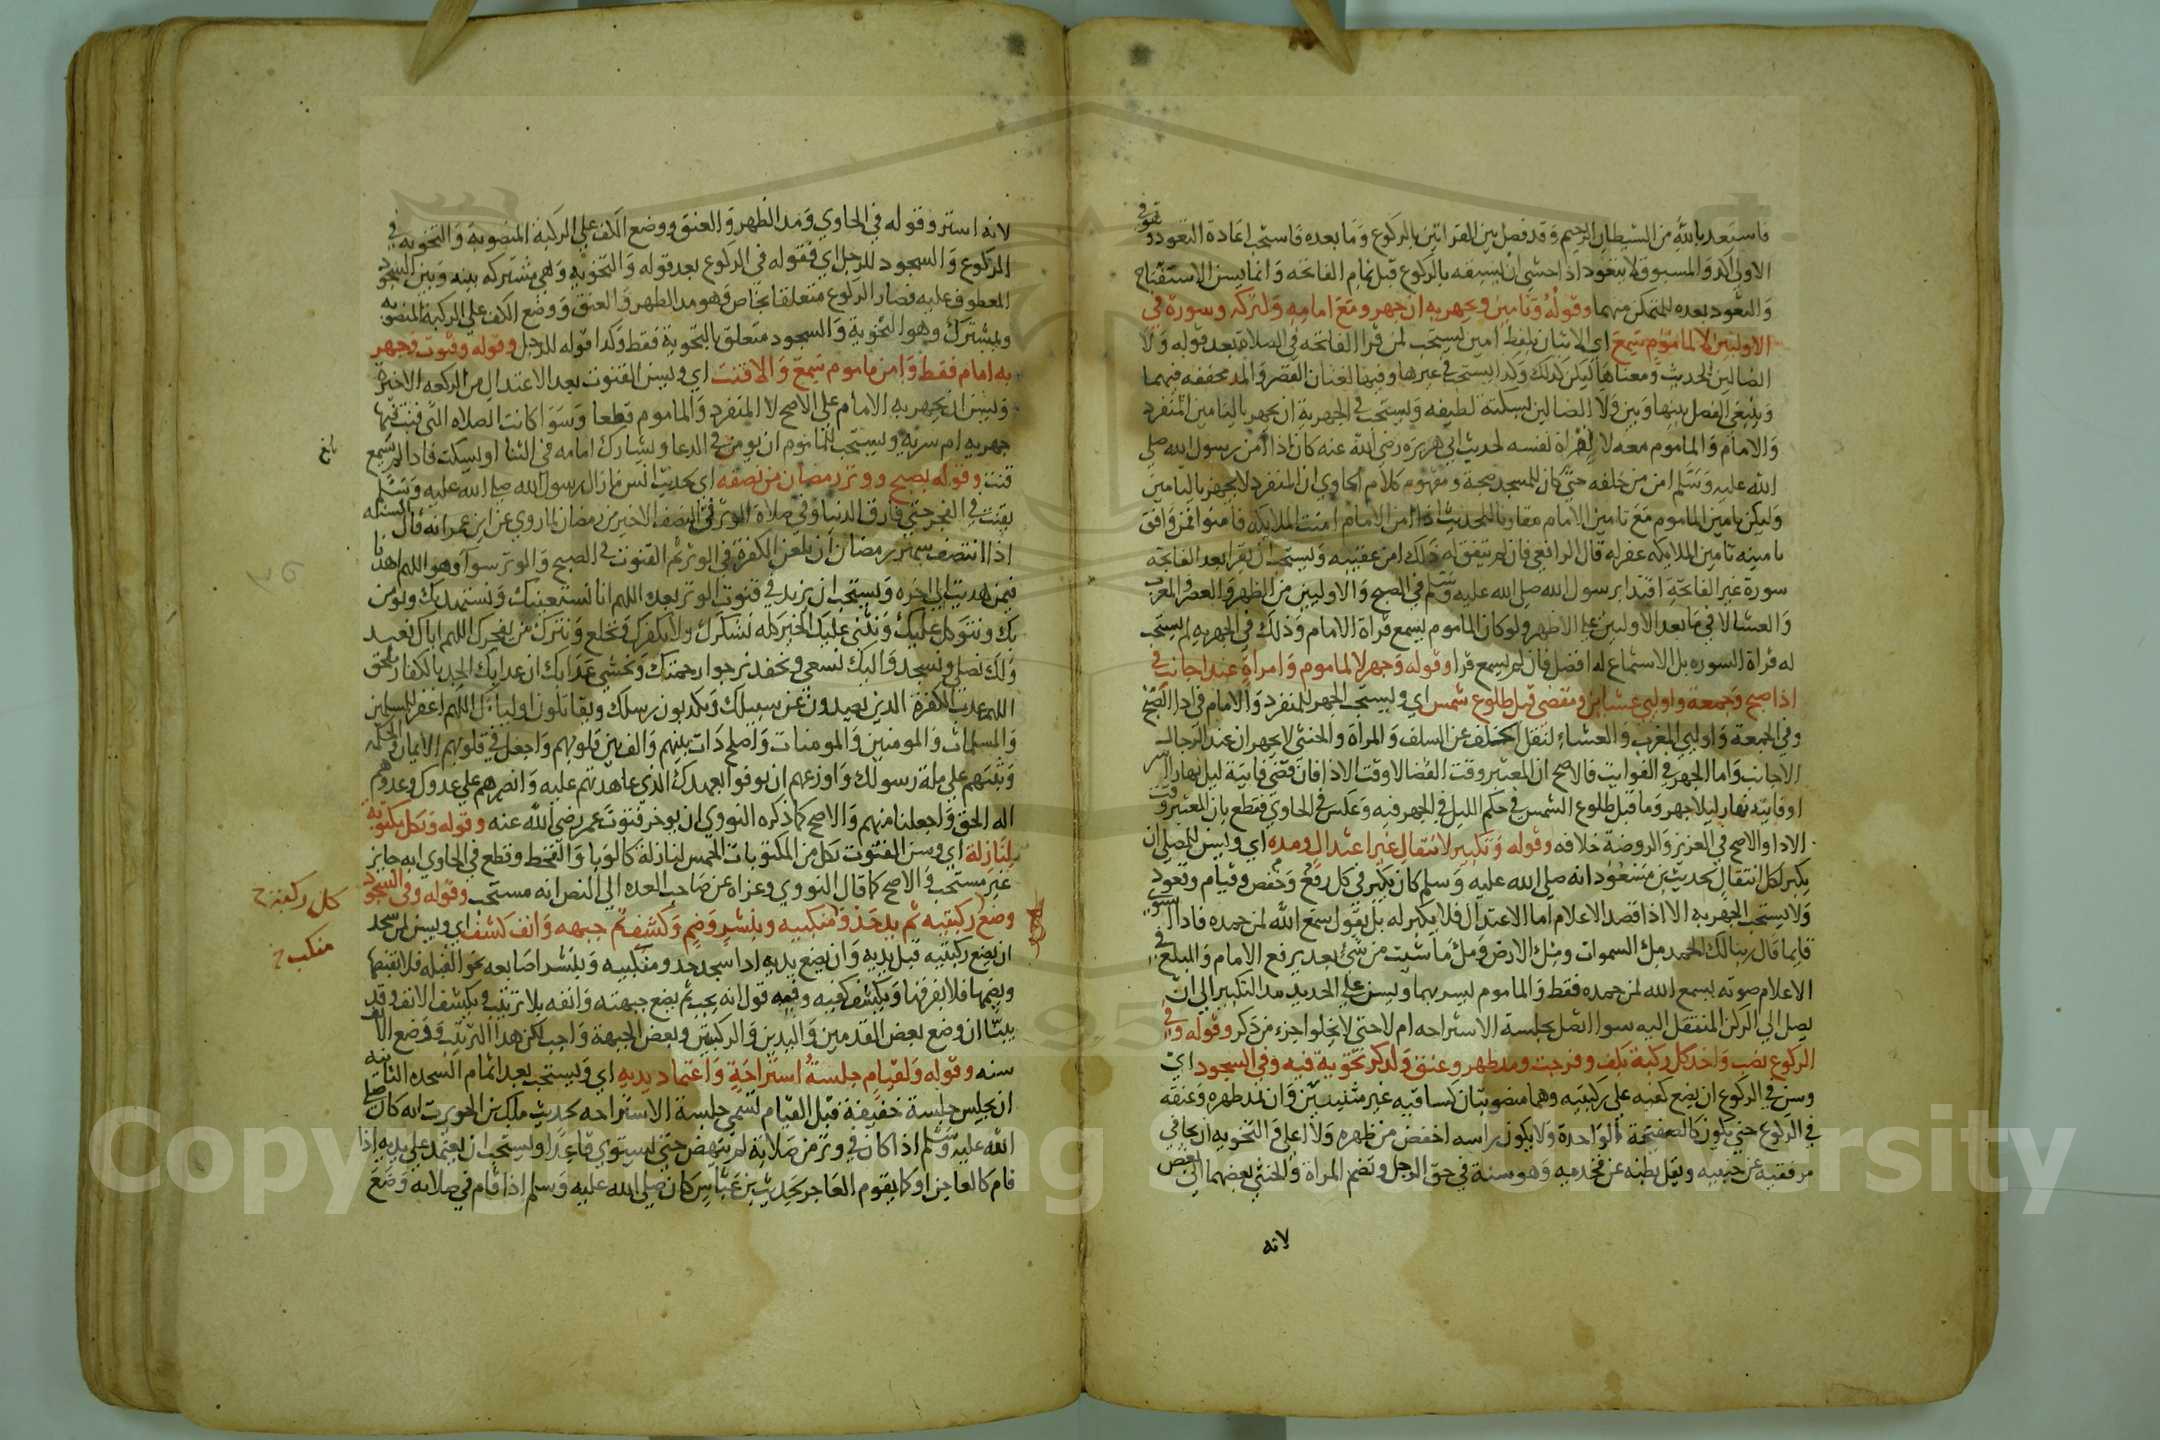 فاستعذ بالله من الشيطان الرجيم وقد فصل بين القراتين بالركوع وما بعده فاستحب اعادة التعوذ وهو في
الاولى اكد والمسبوق لا يتعوذ اذا خشي ان يسبقه بالركوع قبل تمام الفاتحه وانما يسن الاستفتاح
والتعوذ بعده للمتمكن منهما وقوله وتامين وبجهر به ان جهر ومع امامه ولتركه وسورة في
الاوليين لا لماموم سمع اي الاتيان بلفظ امين يستحب لمن قرا الفاتحه في الصلاة بعد قوله ولا
الضالين لحديث ومعناها ليكن كذلك وكذا يستحب في غيرها وفيها لغتان القصر والمد مخففه فيهما
وينبغي الفصل بينها وبين ولا الضالين بسكتة لطيفه ويستحب في الجهرية ان يجهر بالتامين المنفرد
والامام والماموم معه لا لقراة نفسه لحديث ابي هريره رضي الله عنه كان اذا امن رسول الله صلى
الله عليه وسلم امن من خلفه حتى كان للمسجد ضجة ومفهوم كلام الحاوي ان المنفرد لا يجهر بالتامين
وليكن تامين الماموم مع تامين الامام مقارنا للحديث اذا امن الامام امنت الملايكه فامنوا فمن وافق
تامينه تامين الملايكه غفر له قال الرافعي فان لم يتفق له ذلك امن عقيبه ويستحب ان يقرا بعد الفاتحه
سورة غير الفاتحة اقتدا برسول الله صلى الله عليه وسلم في الصبح والاوليين من الظهر والعصر والمغرب
والعشا لا في ما بعد الاوليين على الاظهر ولو كان الماموم يسمع قراة الامام وذلك في الجهرية لم يستحب
له قراة السوره بل الاستماع له افضل فان لم يسمع قرا وقوله وجهر لا لماموم وامراة عند اجانب في
اذا صبح وجمعة واوليي عشاين ومقضى قبل طلوع شمس اي ويستحب الجهر للمنفرد والامام في ادا الصبح
وفي الجمعة واوليي المغرب والعشاء لنقل الخلف عن السلف والمراة والخنثى لا يجهران عند الرجال
الاجانب واما الجهر في الفوايت فالاصح ان المعتبر وقت القضا لا وقت الادا فان قضى فايتة ليل نهارا اسر
او فايتة نهار ليلا جهر وما قبل طلوع الشمس في حكم الليل في الجهر فيه وعكس في الحاوي فقطع بان المعتبر وقت
الادا والاصح في العزيز والروضة خلافه وقوله وتكبير لانتقال غير اعتدال ومده اي ويسن للمصلي ان
يكبر لكل انتقال لحديث بن مسعود انه صلى الله عليه وسلم كان يكبر في كل رفع وخفض وقيام وقعود
ولا يستحب الجهر به الا اذا قصد الاعلام اما الاعتدال فلا يكبر له بل يقول سمع الله لمن حمده فاذا استوى
قايما قال ربنا لك الحمد مل السموات ومل الارض ومل ما شيت من شي بعد يرفع الامام والمبلغ في
الاعلام صوته بسمع الله لمن حمده فقط والماموم يسر بهما ويسن على الجديد مد التكبير الى ان
يصل الى الركن المنتقل اليه سوا اتصل بجلسة الاستراحه ام لا حتى لا يخلوا جزء من ذكر وقوله وفي
الركوع نصب واخذ كل ركبة بكف وفرجت ومد ظهر وعنق ولذكر تخوية فيه وفي السجود اي
وسن في الركوع ان يضع كفيه على ركبتيه وهما منصوبتان كساقيه غير مثنيتين وان يمد ظهره وعنقه
في الركوع حتى يكون كالصفيحة الواحدة ولا يكون راسه اخفض من ظهره ولا اعلى في التخويه ان يجافي
مرفقيه عن جنبيه ويقل بطنه عن فخذيه وهو سنة في حق الرجل وتضم المراة والخنثى بعضهما الى بعض
لانه
لانه استر وقوله في الحاوي ومد الظهر والعنق ووضع الكف على الركبة المنصوبة والتخويه في
الركوع والسجود للرجل اي فقوله في الركوع بعد قوله والتخويه وهي مشتركه بينه وبين السجود
المعطوف عليه فصار الركوع متعلقا بخاص وهو مد الظهر والعنق ووضع الكف على الركبة المنصوبه
وبمشترك وهو التخوية والسجود متعلق بالتخوية فقط وكذا قوله للرجل وقوله وقنوت وجهر
به امام فقط وامن ماموم سمع والا قنت اي ويسن القنوت بعد الاعتدال من الركعه الاخيرة
ويسن ان يجهر به الامام على الاصح لا المنفرد والماموم قطعا وسوا كانت الصلاه التي قنت فيها
جهريه ام سرية ويستحب للماموم ان يومن في الدعا ويشارك امامه في الثنا او يسكت فاذا لم يسمع
قنت وقوله بصبح ووتر رمضان من نصفه اي لحديث انس ما زال رسول الله صلى الله عليه وسلم
يقنت في الفجر حتى فارق الدنيا وفي صلاة الوتر في النصف الاخير من رمضان لما روي عن ابن عمر انه قال السنه
اذا انتصف شهر رمضان ان يلعن الكفرة في الوتر ثم القنوت في الصبح والوتر سوا وهو اللهم اهدنا
فيمن هديت الى اخره ويستحب ان يزيد في قنوت الوتر بعده اللهم انا نستعينك ونستهديك ونومن
بك ونتوكل عليك ونثني عليك الخير كله نشكرك ولا نكفرك ونخلع ونترك من يفجرك اللهم اياك نعبد
ولك نصلي ونسجد واليك نسعى ونحفد نرجوا رحمتك ونخشى عذابك ان عذابك الجد بالكفار ملحق
اللهم عذب الكفرة الذين يصدون عن سبيلك ويكذبون رسلك ويقاتلون اولياك اللهم اغفر للمسلمين
والمسلمات والمومنين والمومنات واصلح ذات بينهم والف بين قلوبهم واجعل في قلوبهم الايمان والحكمه
وثبتهم على ملة رسولك واوزعهم ان يوفوا بعهدك الذي عاهدتهم عليه وانصرهم على عدوك وعدوهم
اله الحق واجعلنا منهم والاصح كما ذكره النووي ان يوخر قنوت عمر رضي الله عنه وقوله وبكل مكتوبة
لنازلة اي وسن القنوت بكل من المكتوبات الخمس لنازلة كالوبا والقحط وقطع في الحاوي انه جايز
غير مستحب والاصح كما قال النووي وعزاه عن صاحب العده الى النص انه مستحب وقوله وفي السجود
وضع ركبتيه ثم يد حذو منكبيه وبنشر وضم وكشف ثم جبهه وانف كشف اي ويسن لمن سجد
ان يضع ركبتيه قبل يديه وان يضع يديه اذا سجد حذو منكبيه وينشر اصابعه نحو القبله فلا يقبضها
ويضمها فلا يفرقها ويكشف كفيه وفيه قول انه يجب ثم يضع جبهته وانفه بلا ترتيب ويكشف الانف وقد
بينا ان وضع بعض القدمين واليدين والركبتين وبعض الجبهة واجب لكن هذا الترتيب ووضع الانف
سنه وقوله ولقيام جلسة استراحة واعتماد يديه اي ويستحب بعد اتمام السجده الثانيه
ان يجلس جلسة خفيفة قبل القيام تسمى جلسة الاستراحه لحديث ملك بن الحويرث انه كان صلى
الله عليه وسلم اذا كان في وتر من صلاته لم ينهض حتى يستوي قاعدا ويستحب ان يعتمد على يديه اذا
قام كالعاجز او كما يقوم العاجز لحديث بن عباس كان صلى الله عليه وسلم اذا قام في صلاته وضع
بلغ
كل ركبة خ
منكب خ
Copyright © King Saud University